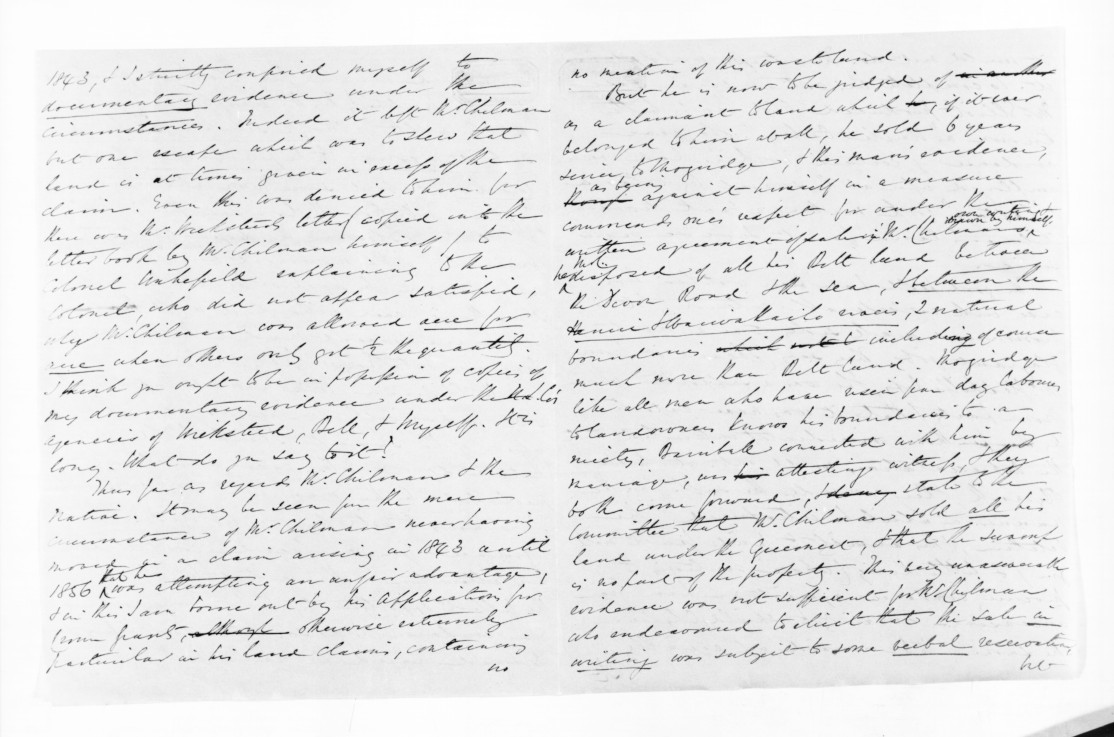 1843, & I strictly confined myself to
documentary evidence under the
circumstances. Indeed it left Mr. Chilman
but one escape which was to shew that
land is at times given in excess of the
claim. Even this was denied to him for
there was Mr. Wicksteeds letter (copied into the
letter book by Mr. Chilman himself) to
Colonel Wakefield explaining to the
Colonel, who did not appear satisfied,
why Mr. Chilman was allowed acre for
acre when others only got ½ the quantity.
I think you ought to be in possession of copies of
my documentary evidence under the N.Z. Co's
agencies of Wicksteed, Bell, & Myself. It is
long. What do you say to it?
Thus far as regards Mr. Chilman & the
Native. It may be seen from the mere
circumstance of Mr. Chilman never having
moved in a claim arising in 1843 until
1856 that he was attempting an unfair advantage,
& in this I am borne out by his Applications for
Crown grants, although otherwise extremely
particular in his land claims, containing
no
no mention of this waste land.
But he is now to be judged of in another
as a claimant to land which he, if it ever
belonged to him at all, he sold 6 years
since, to Mogridge, & this man's evidence,
though as being against himself in a measure
commands one's respect for under the
written agreement of sale in Mr. Chilman's own writing drawn by himself
he disposed of all his Belt land between
the Devon Road & the sea, & between the
Henui & Waiwakaiho rivers, 2 natural
boundaries which including of course
much more than Belt land. Mogridge
like all men who have risen from day labourers
to landowners knows his boundaries to a
nicety, connected with him by
marriage, was his attesting witness, & they
both come forward, & state to the
Committee that Mr. Chilman sold all his
land under the Agreement, & that the swamp
is no part of the property. This being unanswerable
evidence was not sufficient for Mr. Chilman
who endeavoured to elicit that the sale in
writing was subject to some verbal reservation,
but